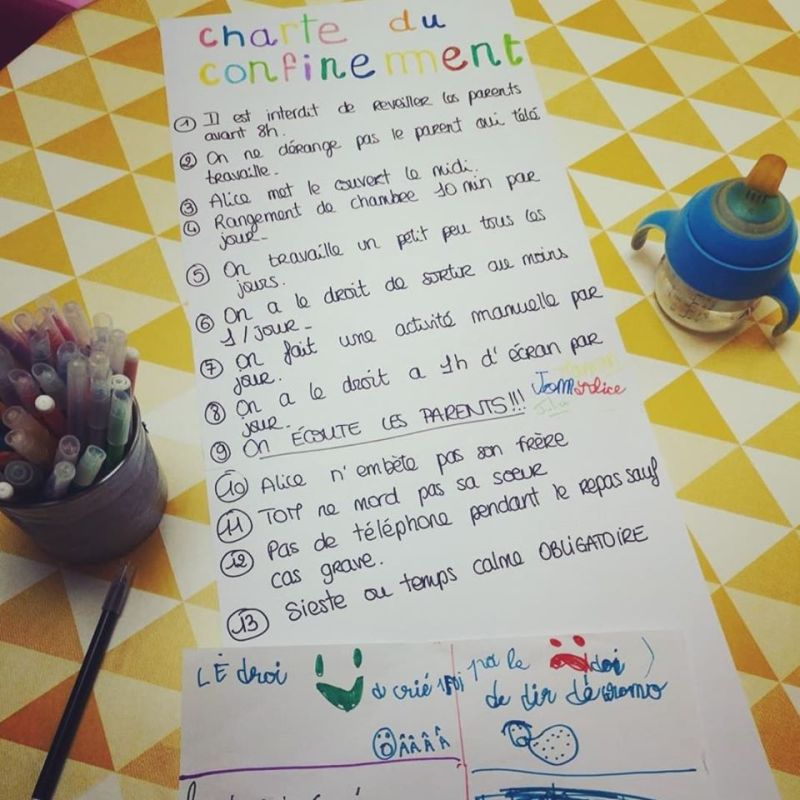 charte du
confinement
① Il est interdit de reveiller les parents
avant 8h.
② On ne dérange pas le parent qui télé
travaille.
③ Alice met le couvert le midi.
④ Rangement de chambre 10 min par
jour.
⑤ On travaille un petit peu tous les
jours.
⑥ On a le droit de sortir au moins
1/jour.
⑦ On fait une activité manuelle par
jour.
⑧ On a le droit a 1h d'écran par
jour.
⑨ On ÉCOUTE LES PARENTS!!!
Alice
⑩ Alice n'embête pas son frère
⑪ TOM ne mord pas sa soeur
⑫ Pas de téléphone pendant le repas sauf
cas grave.
⑬ Sieste ou temps calme OBLIGATOIRE
LÉ droi
d crié
ÂÂÂÂ
pa le doi
de dir dé